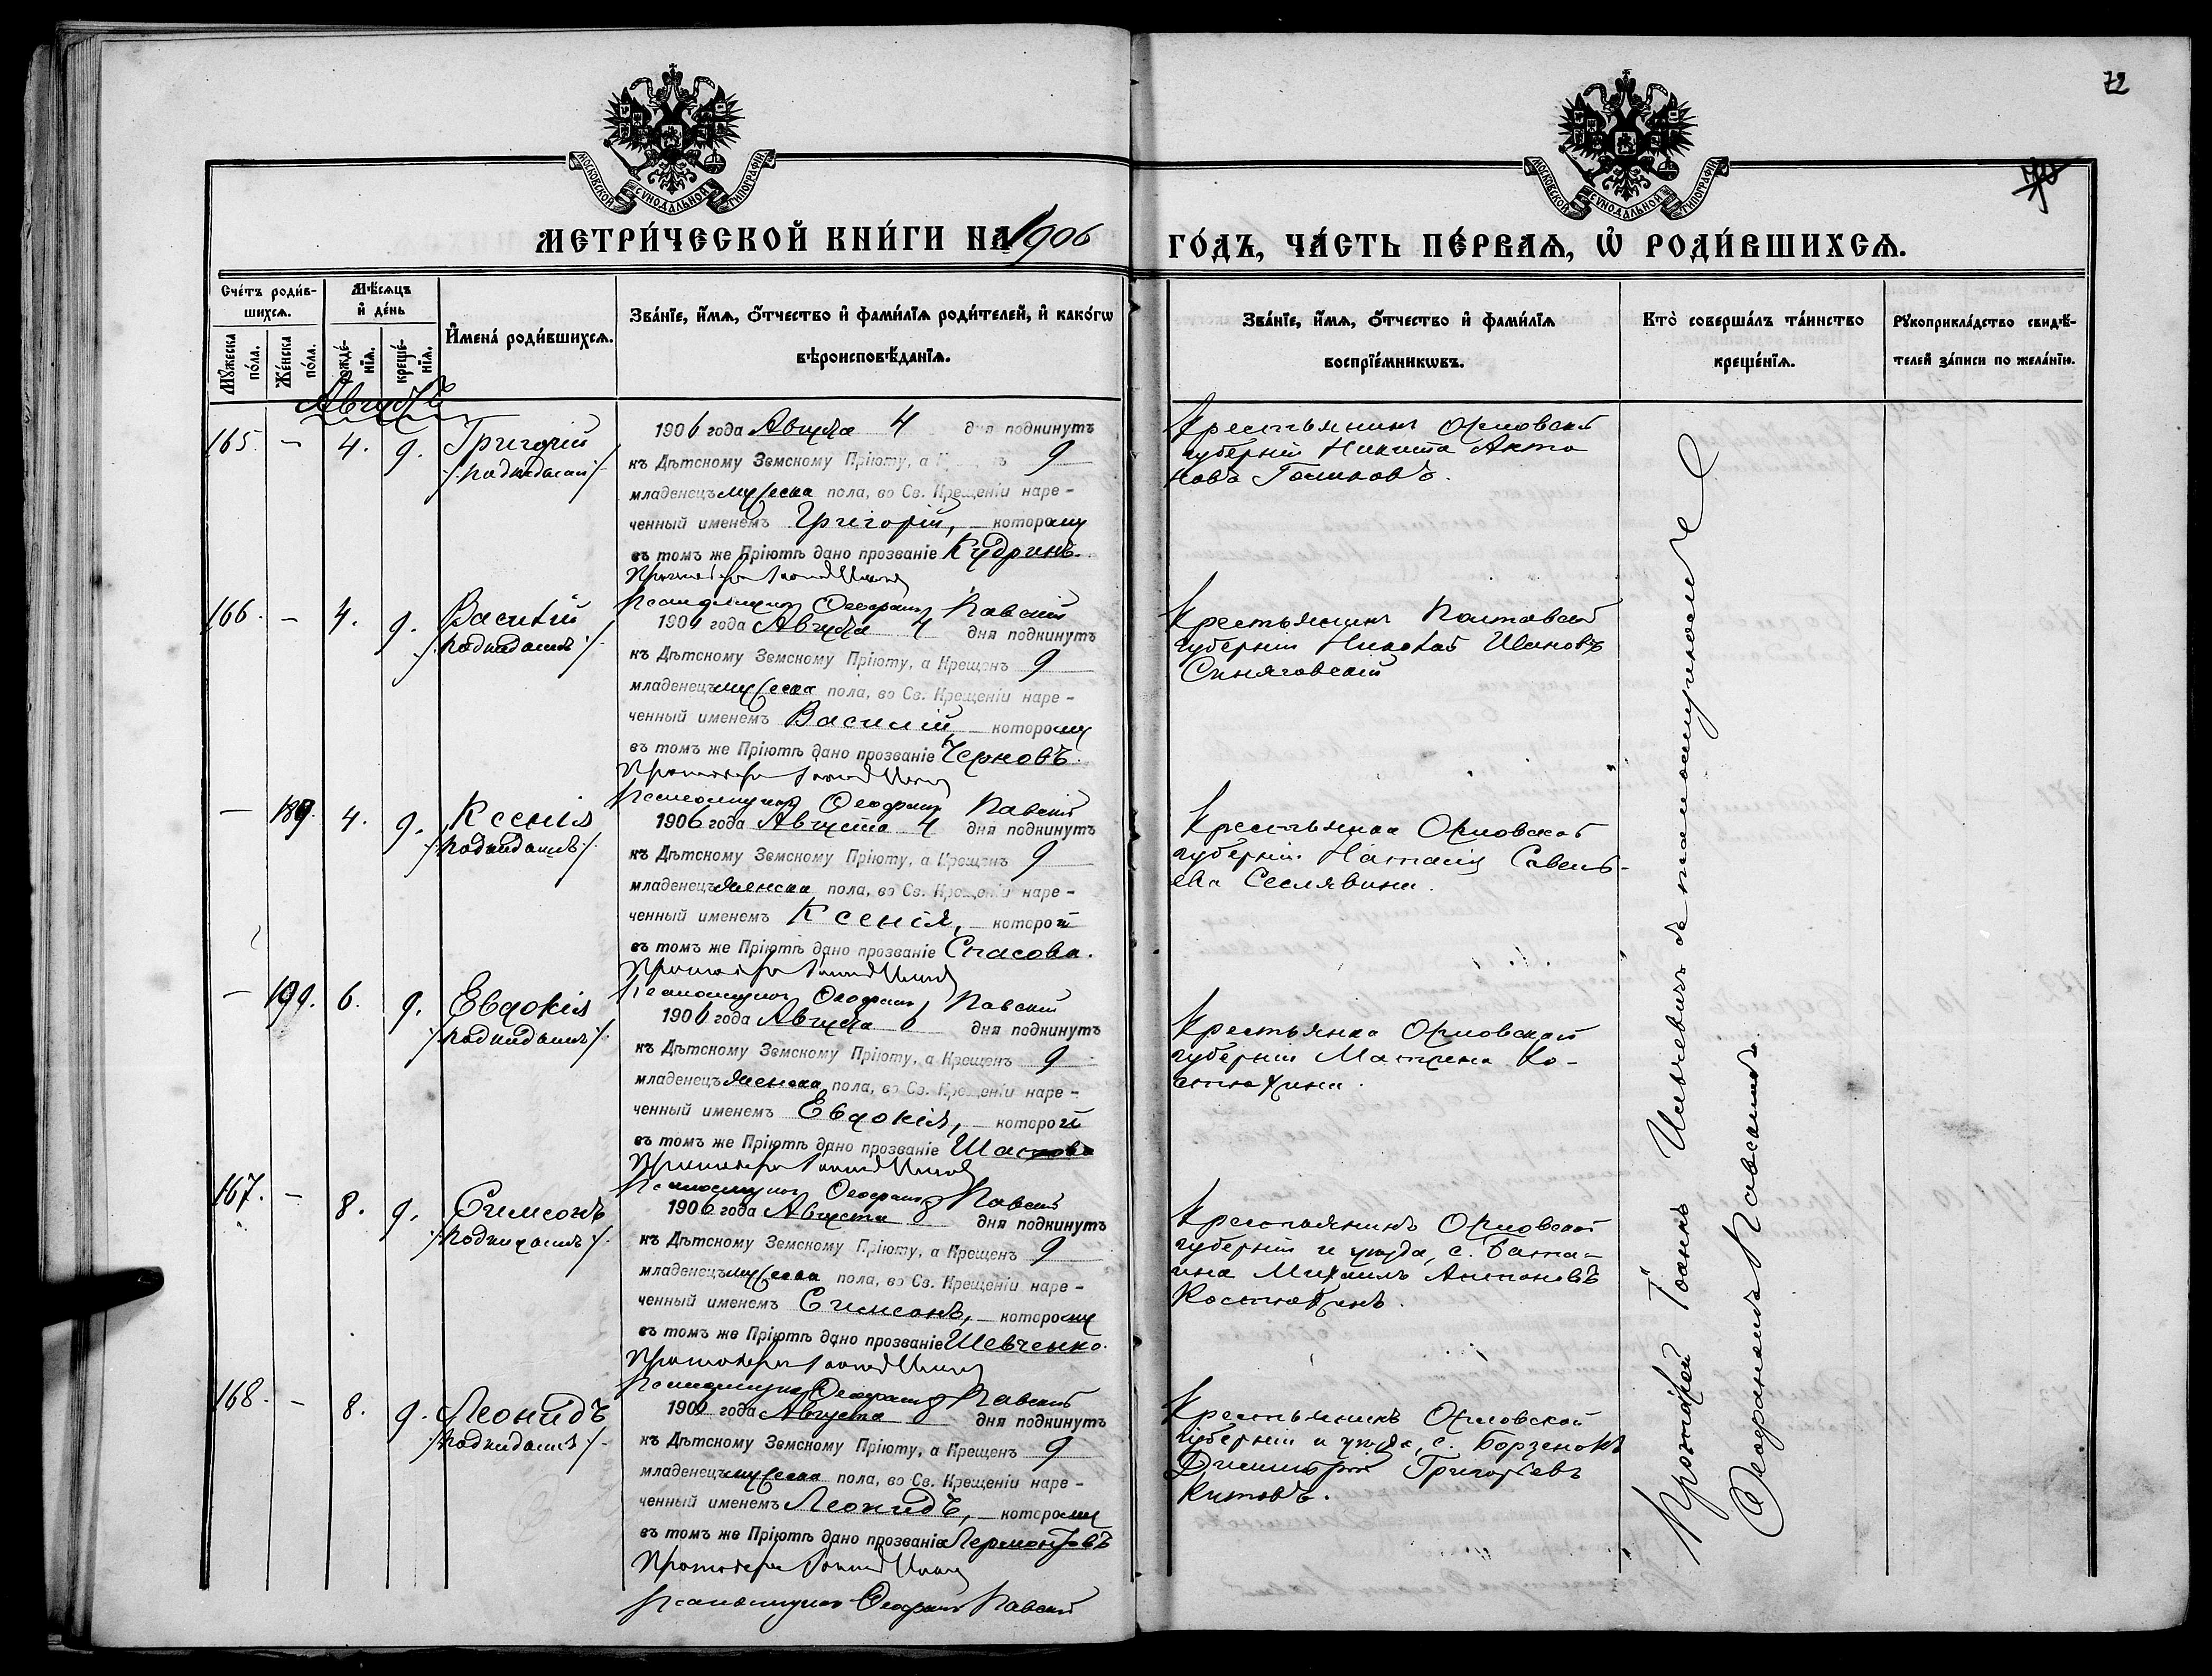 72
МОСКОВСКОЙ СѴНОДАЛЬНОЙ ТИПОГРАФІИ
МОСКОВСКОЙ СѴНОДАЛЬНОЙ ТИПОГРАФІИ
МЕТРИ́ЧЕСКОЙ КНИ́ГИ НА 1906
ГО́ДЪ, ЧА́СТЬ ПЕ́РВАѦ, Ѡ҆ РОДИ́ВШИХСѦ.
Сче́тъ роди́в-
шихсѧ.
Мꙋ́жеска
по́ла.
Же́нска
по́ла.
Мѣ́сѧцъ
и҆ де́нь
рожде́-
нїѧ.
креще́-
нїѧ.
И҆мена̀ роди́вшихсѧ.
Зва́нїе, и҆́мѧ, ѻ҆́тчество и҆ фами́лїѧ роди́телей, и҆ како́гѡ
вѣроисповѣ́данїѧ.
Зва́нїе, и҆́мѧ, ѻ҆́тчество и҆ фами́лїѧ
воспрїе́мникѡвъ.
Кто̀ соверша́лъ та́инство
креще́нїѧ.
Рꙋкоприкла́дство свидѣ́-
телей за́писи по жела́нїю.
Августъ
165. – 4. 9. Григорій
/:подкидышъ:/
1906 года Августа 4 дня подкинутъ
къ Дѣтскому Земскому Пріюту, а Крещенъ 9
младенецъ мужеска пола, во Св. Крещеніи наре-
ченный именемъ Григорій, которому
въ томъ же Пріютѣ дано прозваніе Кудринъ.
Протоіерей Іоаннъ
Псаломщикъ Ѳеофанъ Павскій
Крестьянинъ Орловской
губерніи Никита Анто
новъ Голиковъ.
166. – 4. 9. Василій
/:подкидышъ:/
1906 года Августа 4 дня подкинутъ
къ Дѣтскому Земскому Пріюту, а Крещенъ 9
младенецъ мужеска пола, во Св. Крещеніи наре-
ченный именемъ Василій, которому
въ томъ же Пріютѣ дано прозваніе Черновъ.
Протоіерей Іоаннъ
Псаломщикъ Ѳеофанъ Павскій
Крестьянинъ Полтавской
губерніи Николай Ивановъ
Синяговскій
– 189. 4. 9. Ксенія
/:подкидышъ:/
1906 года Августа 4 дня подкинутъ
къ Дѣтскому Земскому Пріюту, а Крещенъ 9
младенецъ женска пола, во Св. Крещеніи наре-
ченный именемъ Ксенія, которой
въ томъ же Пріютѣ дано прозваніе Спасова.
Протоіерей Іоаннъ
Псаломщикъ Ѳеофанъ Павскій
Крестьянка Орловской
губерніи Наталія Савель-
ева Сеслявина.
– 6. 9. Евдокія
/:подкидышъ:/
1906 года Августа 6 дня подкинутъ
къ Дѣтскому Земскому Пріюту, а Крещенъ 9
младенецъ женска пола, во Св. Крещеніи наре-
ченный именемъ Евдокія, которой
въ томъ же Пріютѣ дано прозваніе
Протоіерей Іоаннъ
Псаломщикъ Ѳеофанъ Павскій
Крестьянка Орловской
губерніи Матрена Ко-
стюхина.
167. – 8. 9. Симеонъ
/:подкидышъ:/
1906 года Августа 8 дня подкинутъ
къ Дѣтскому Земскому Пріюту, а Крещенъ 9
младенецъ мужеска пола, во Св. Крещеніи наре-
ченный именемъ Симеонъ, которому
въ томъ же Пріютѣ дано прозваніе Шевченко.
Протоіерей Іоаннъ
Псаломщикъ Ѳеофанъ Павскій
Крестьянинъ Орловской
губерніи и уѣзда, с.
Михаилъ Антоновъ
Костюхинъ.
168. – 8. 9. Леонидъ
/:подкидышъ:/
1906 года Августа 8 дня подкинутъ
къ Дѣтскому Земскому Пріюту, а Крещенъ 9
младенецъ мужеска пола, во Св. Крещеніи наре-
ченный именемъ Леонидъ, которому
въ томъ же Пріютѣ дано прозваніе Лермонтовъ
Протоіерей Іоаннъ
Псаломщикъ Ѳеофанъ Павскій
Крестьянинъ Орловской
губерніи и уѣзда, с. Борзенокъ
Димитрій Григорьевъ
Китовъ.
Протоіерей Іоаннъ Ильчевичъ съ псаломщикомъ
Ѳеофаномъ Павскимъ.